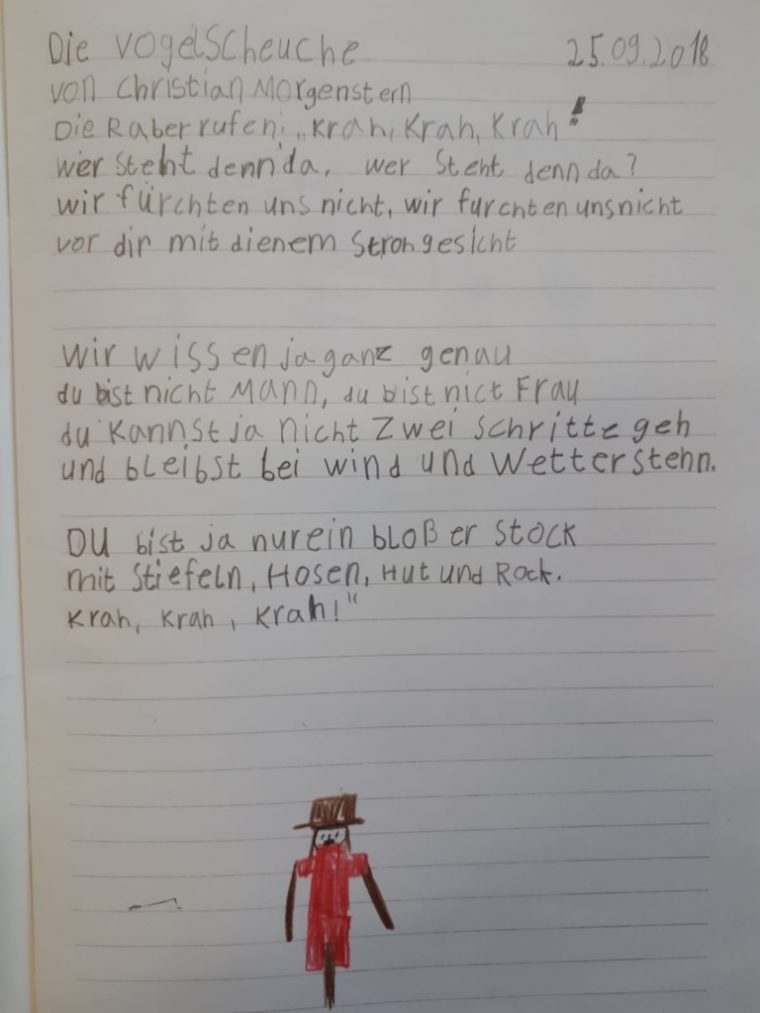 Die Vogelscheuche 25.09.2018
von Christian Morgenstern
Die Raber rufen: „Krah, Krah, Krah!
wer steht denn da, wer steht denn da?
wir fürchten uns nicht, wir furchten uns nicht
vor dir mit dienem Strohgesicht
wir wissen ja ganz genau
du bist nicht Mann, du bist nict Frau
du kannst ja nicht zwei schritte geh
und bleibst bei wind und Wetter stehn.
DU bist ja nur ein bloßer Stock
mit Stiefeln, Hosen, Hut und Rock.
Krah, Krah, Krah!"